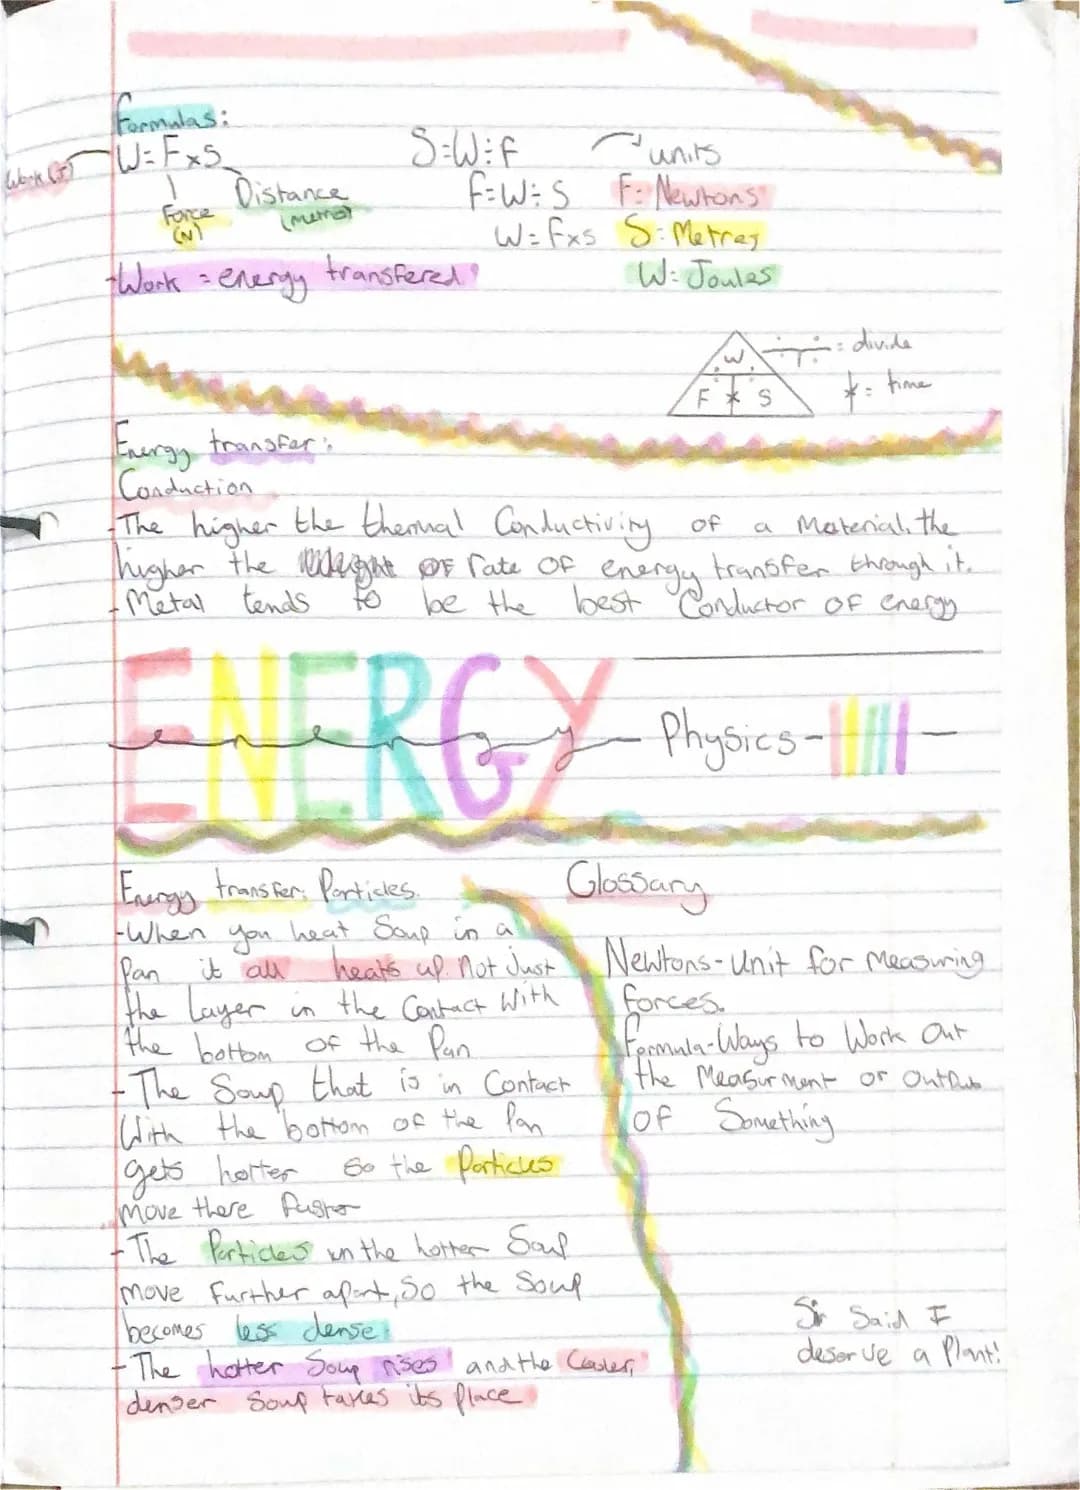 Formulas:
W=F×S
Work (J)
Force
(N)
Distance
(metres)
S=W÷f
F=W÷S
W=F×S
units
F: Newtons
S: Metres
W: Joules
-Work = energy transfered!
W
F * S
÷ = divide
* = time
Energy transfer:
Conduction
-The higher the thermal Conductivity of a Material, the
higher the rate of energy transfer through it.
-Metal tends to be the best Conductor of energy
ENERGY
energy - Physics -
Energy transfer: Particles.
-When you heat Soup in a
Pan it all heats up. Not Just
the Layer in the Contact With
the bottom of the Pan
-The Soup that is in Contact
With the bottom of the Pan
gets hotter so the Particles
move there faster
-The Particles in the hotter Soup
move further apart, So the Soup
becomes less dense.
-The hotter Soup rises and the Cooler,
denser Soup takes its place
Glossary
Newtons-Unit for Measuring
forces.
Formula-Ways to Work Out
the Measurment or Output
of Something
Sir Said I
deserve a Plant!